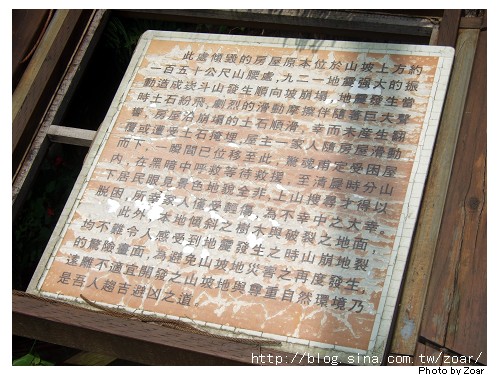 此處傾毀的房屋原本位於山坡上方約
一百五十公尺山腰處,九二一地震強大的振
動造成崁斗山發生順向坡崩塌,地震發生當
時土石紛飛,劇烈的滑動摩擦伴隨著巨大聲
響,房屋沿崩塌的土石順滑,幸而未產生翻
覆或遭受土石掩埋,屋主一家人隨房屋滑動
而下,一瞬間已位移至此,驚魂甫定受困屋
內,在黑暗中呼救等待救援,至清晨時分山
下居民眼見景色地貌全非,上山搜尋才得以
脫困,所幸家人僅受輕傷,為不幸中之大幸。
此外,本地傾斜之樹木與破裂之地面,
均不難令人感受到地震發生之時山崩地裂
的驚險畫面,為避免山坡地災害之再度發生,
遠離不適宜開發之山坡地與尊重自然環境乃
是吾人趨吉避凶之道。
http://blog.sina.com.tw/zoar/
Photo by Zoar